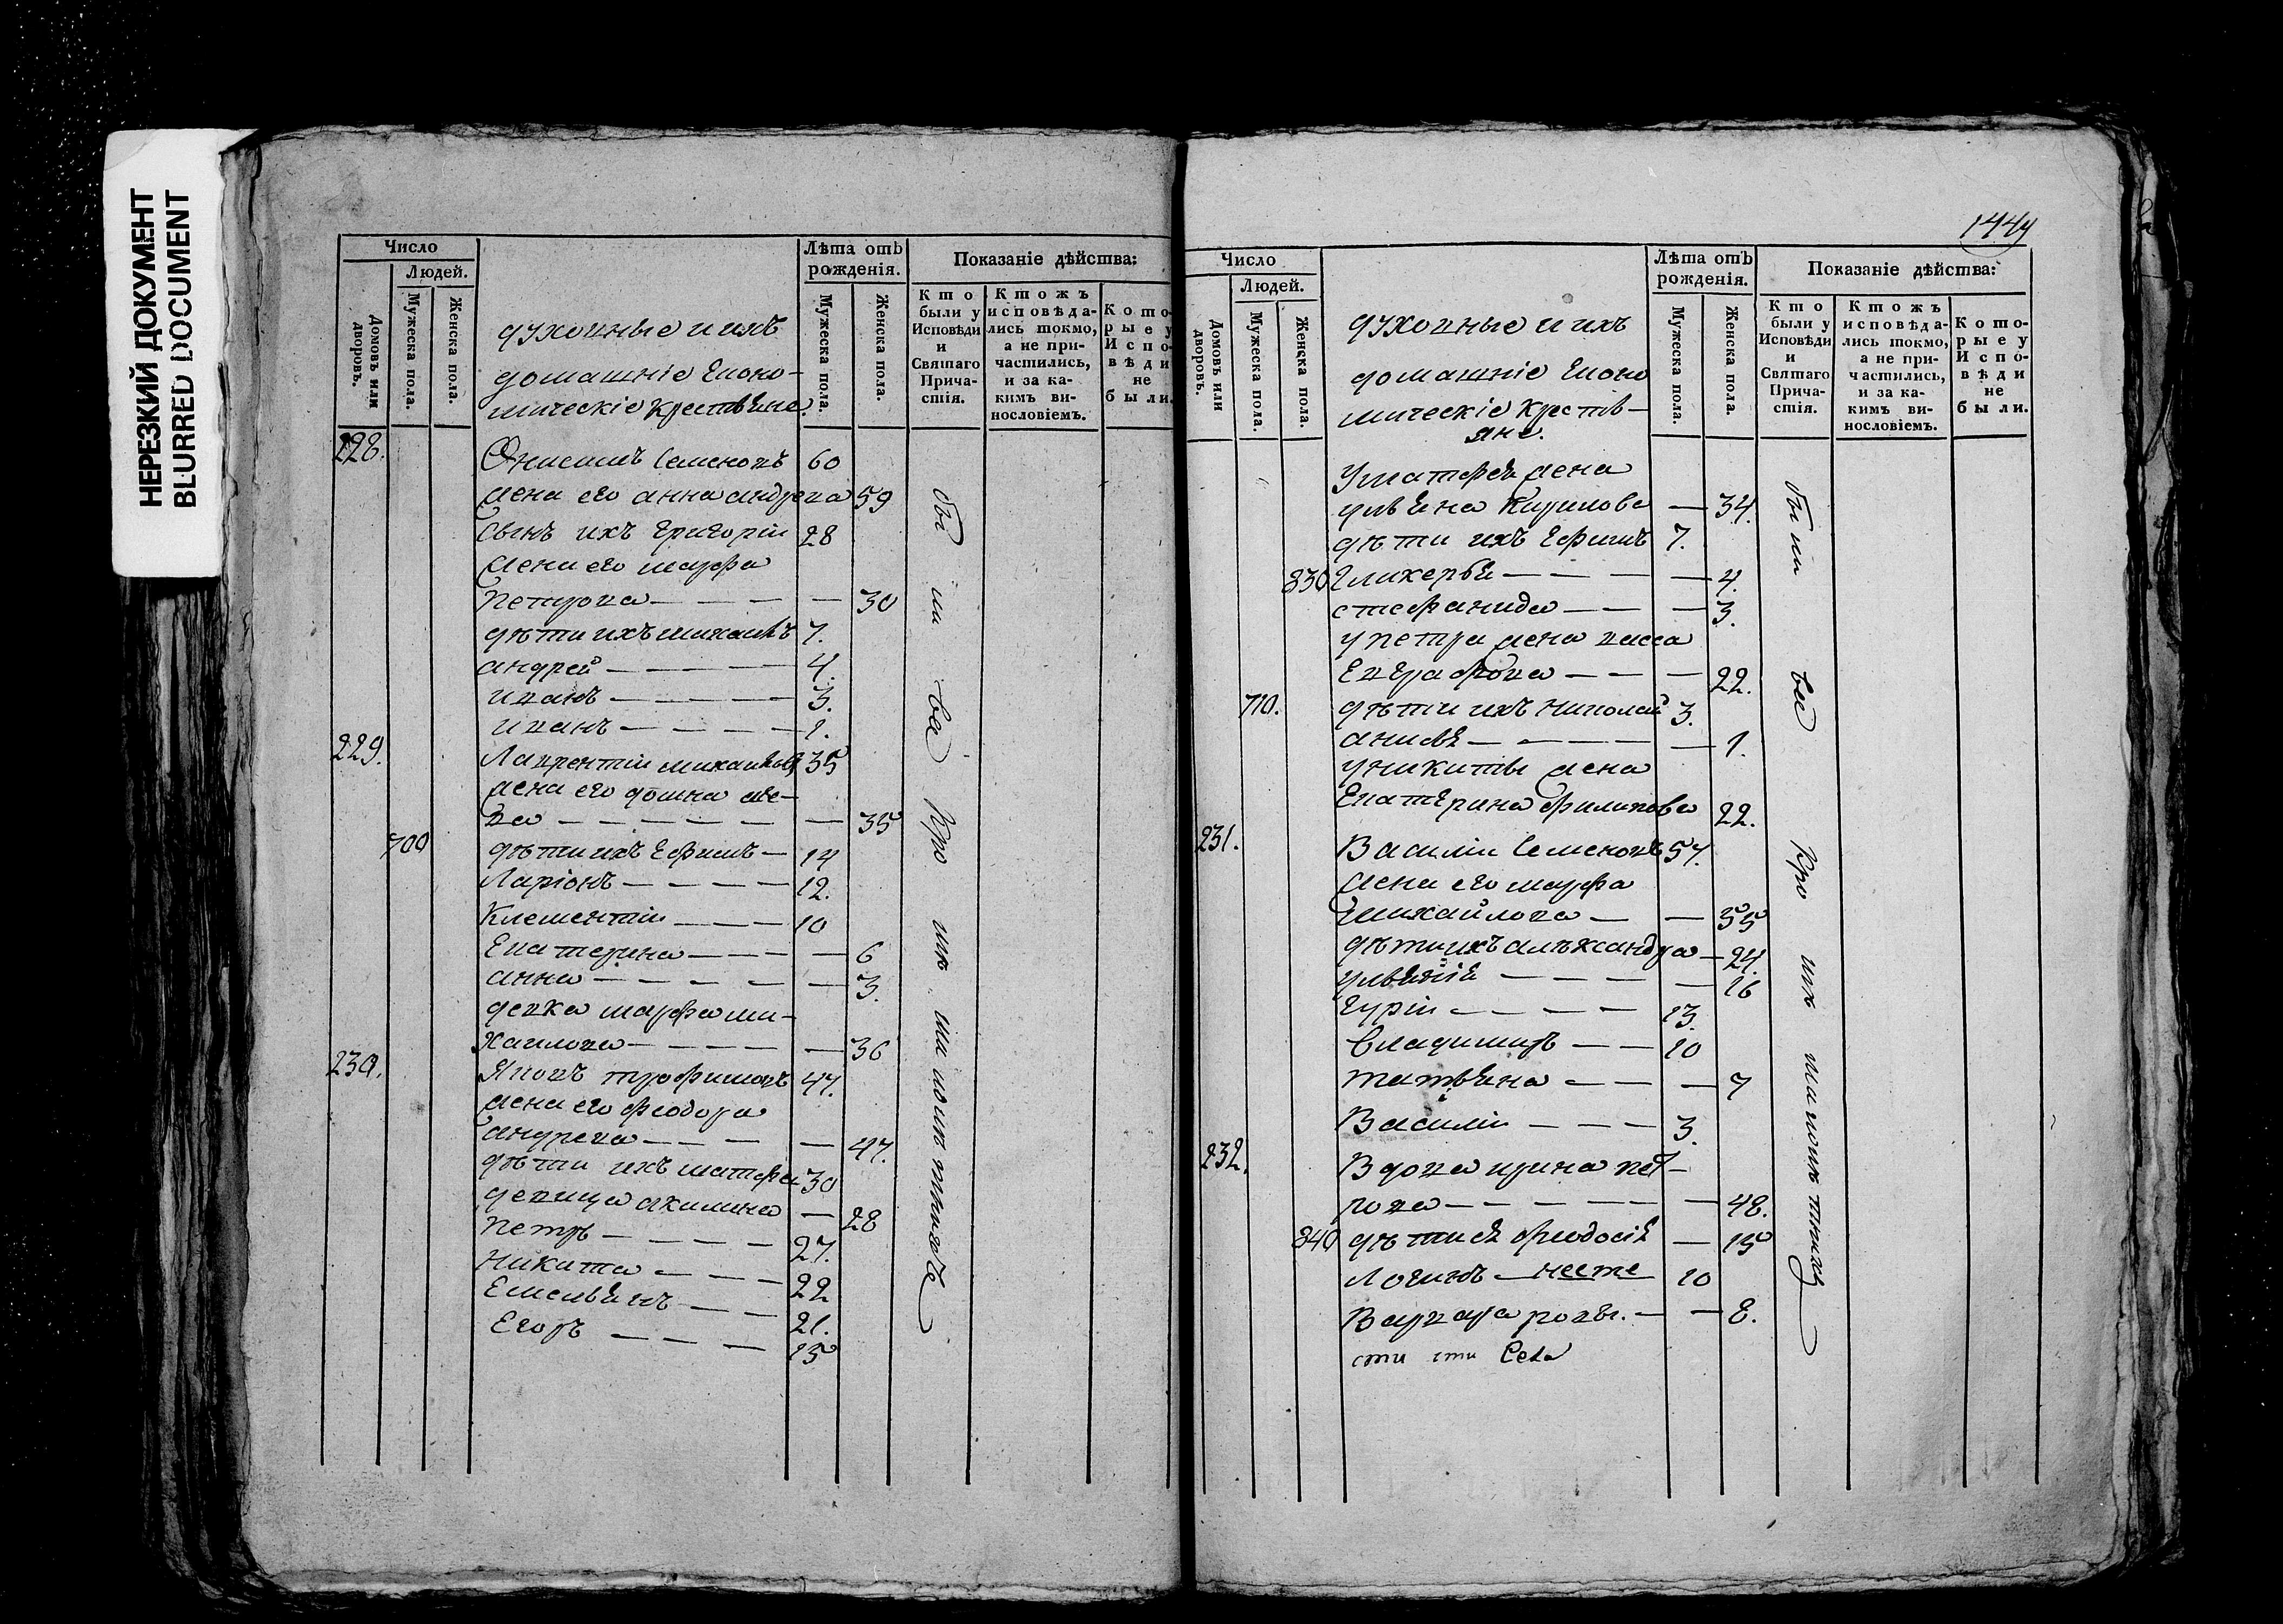 НЕРЕЗКИЙ ДОКУМЕНТ
BLURRED DOCUMENT
Число
Людей.
Домовъ или дворовъ.
Мужеска пола.
Женска пола.
духовные и ихъ
домашніе Еконо-
мическіе крестьяне.
Лѣта отъ рожденія.
Мужеска пола.
Женска пола.
Показаніе дѣйства:
Кто были у Исповѣди и Святаго Причастія.
Ктожъ исповѣдались токмо, а не причастились, и за какимъ винословіемъ.
Которые у Исповѣди не были.
228. Онисимъ Семеновъ 60
жена его анна андреева 59
Сынъ ихъ Григоріи 28
жена его марфа
Петрова — — — — 30
дѣти ихъ михаилъ 7.
андрей — — — — 4.
иванъ — — — — 3.
иванъ — — — — 1.
229. Лаврентіи михаиловъ 35
жена его домна
ва — — — — — — 35
700 дѣти ихъ Ефимъ — 14
Ларіонъ — — — — 12.
Клементіи — — — 10
Екатерина — — — — 6
анна — — — — — — 3.
девка марфа ми-
хаилова — — — — — 36
230. Яковъ трофимовъ 47.
жена его феодора
андреева — — — — 47.
дѣти ихъ матфеи 30
девица акилина — 28
Петръ — — — — 27.
Никита — — — — 22
Емельянъ — — 21.
Егоръ — — — 15
144
Число
Людей.
Домовъ или дворовъ.
Мужеска пола.
Женска пола.
духовные и ихъ
домашніе Еконо
мическіе крестья-
яне.
Лѣта отъ рожденія.
Мужеска пола.
Женска пола.
Показаніе дѣйства:
Кто были у Исповѣди и Святаго Причастія.
Ктожъ исповѣдались токмо, а не причастились, и за какимъ винословіемъ.
Которые у Исповѣди не были.
У матфея жена
ульяна Кирилова — 34.
дѣти ихъ Ефимъ 7.
830 Гликерья — — — — 4.
стефанида — — — 3.
у петра жена васса
Евграфова — — — 22.
710. дѣти ихъ николай 3.
анисья — — — — — 1.
у никиты жена
Екатерина филипова 22.
231. Василіи Семеновъ 57.
жена его марфа
михайлова — — 55
дѣти ихъ александра — 24.
— — — — 16
Гуріи — — — — 13.
владимиръ — — 10
татьяна — — — 7
Василіи — — — 3.
232. Вдова ирина пет-
рова — — — — — — 48.
840 дѣти ея феодосія — 15
Логинъ — 10
Варвара — — 8.